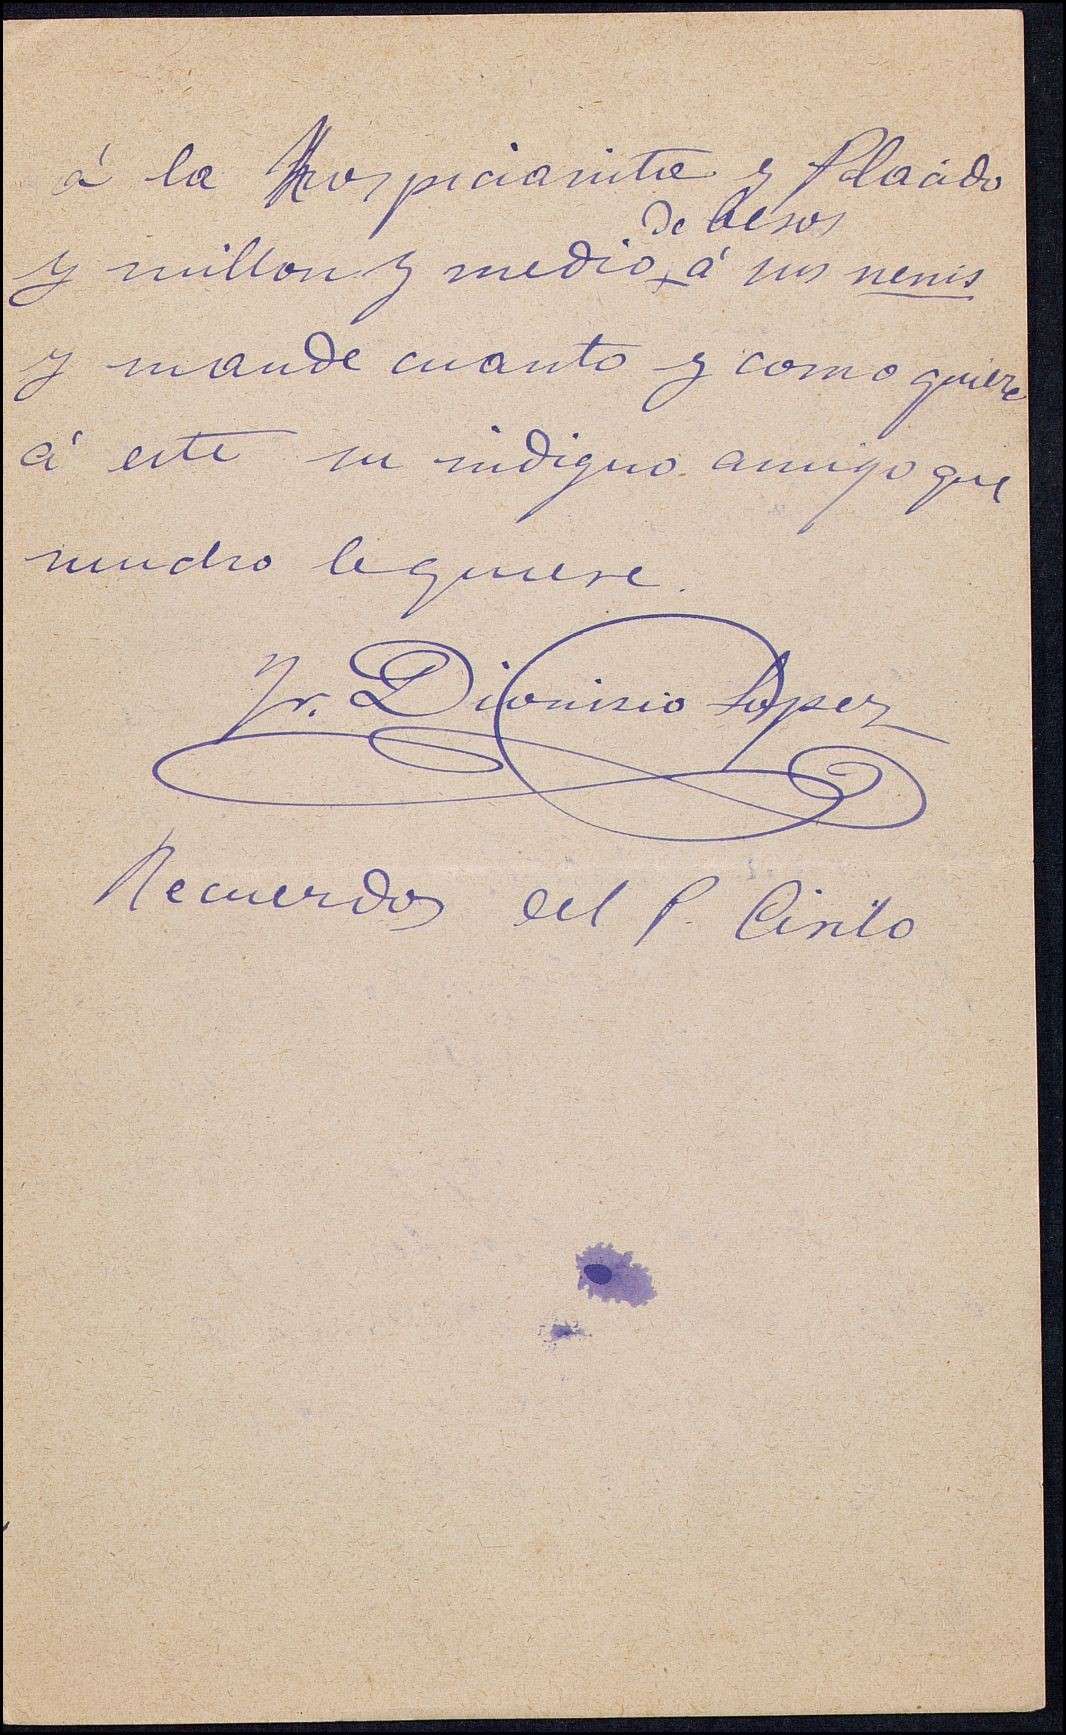 á la Hospicianita y Placido
y millon y medio de besos á sus nenes
y mande cuanto y como quiere
á este su indigno amigo que
mucho le quiere.
Fr. Dionisio Lopez
Recuerdos del P. Cirilo